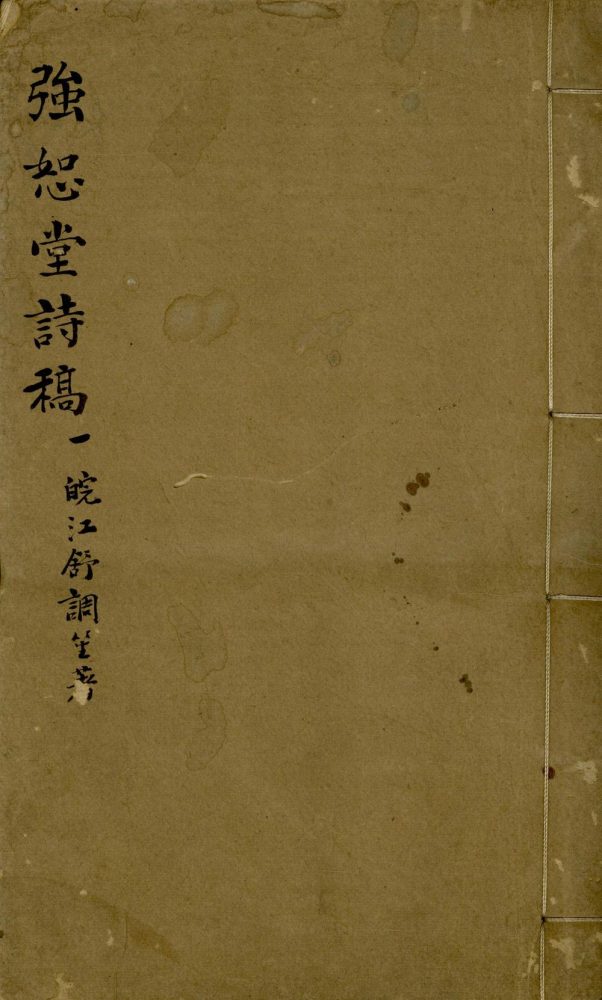 強恕堂詩稿 一
皖江舒調笙著